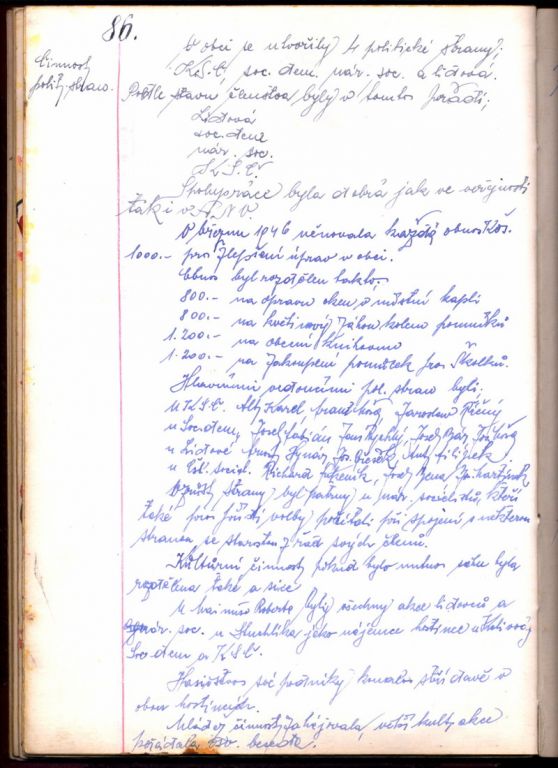 86.
Činnost
polit. stran.
V obci se utvořily 4 politické strany;
K.S.Č, soc. dem. nár. soc. a lidová.
Podle stavu členstva byly v tomto pořadí;
Lidová
soc. dem
nár. soc.
K.S.Č.
Spolupráce byla dobrá jak ve veřejnosti
tak i v M.N.V.
V březnu 1946 věnovala každá obnos Kčs.
1000.- pro zlepšení úprav v obci.
Obnos byl rozdělen takto.
800.- na opravu oken v místní kapli
800.- na květinový záhon kolem pomníků
1.200.- na obecní knihovnu
1.200.- na zakoupení pomůcek pro školku.
Hlavními vedoucími pol. stran byli;
u K.S.Č. Karel Jaroslav
u Soc. dem, Josef Fabián Jan Rychlý, Josef
u Lidové Hynár, Jos. Ant. Filipek.
u čsl. social. Richard Josef
strany byl patrný u nár. socialistů, kteří
také pro příští volby počítali při spojení s některou
stranou se starostou z řad svých členů.
Kulturní činnost pokud bylo nutno sálu byla
rozdělena také a sice
U Roberta byly všechny akce lidovců a
nár. soc. u Stuchlíka jako nájemce hostince
Soc dem a K.S.Č.
Hasičstvo své podniky konalo střídavě v
obou hostincích.
Mládež činnost zahájovala, větší kult. akce
pořádala, besedu.